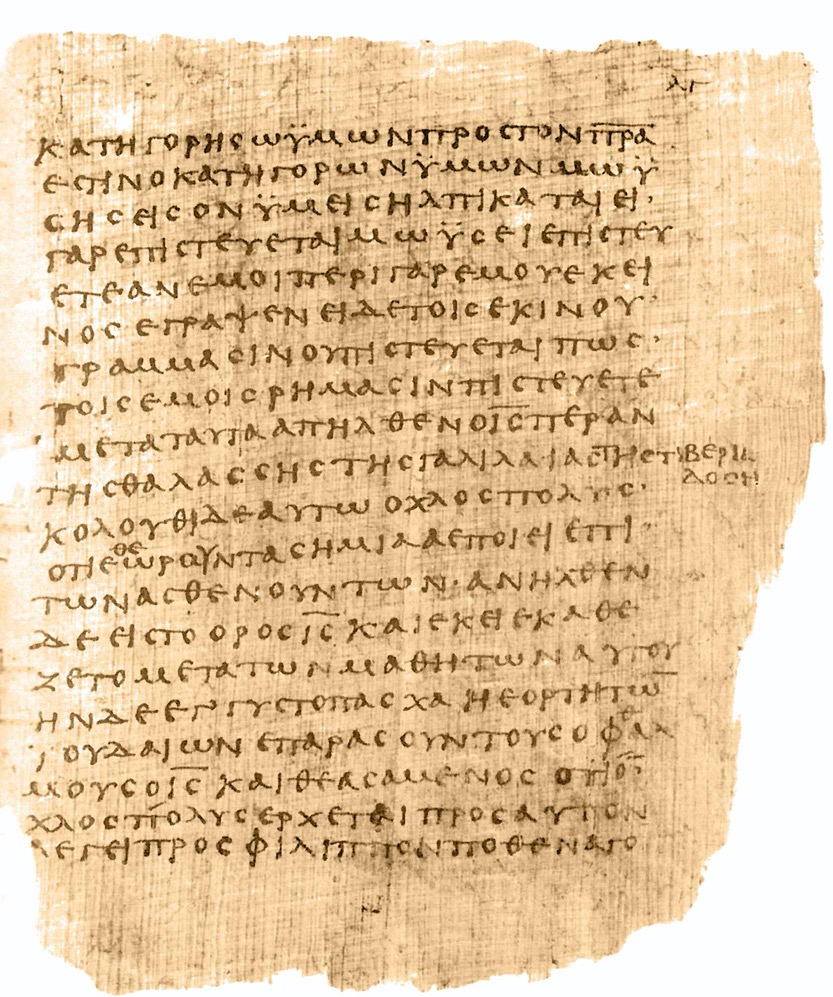 λγ
κατηγορησωϋμωνπροστονπ̅ρ̅α̅
εστινοκατηγορωνϋμωνμωϋ
σησεισονϋμεισηλπικαταιει·
γαρεπιστευεταιμωϋσειεπιστευ
ετεανεμοιπεριγαρεμουεκει
νοσεγραψενειδετοισεκινου·
γραμμασινουπιστευεταιπωσ·
τοισεμοισρημασινπιστευετε
μεταταυτααπηλθενοι̅σ̅περαν
τησθαλασσησ τησγαλιλαιαστηστιβερια
δοση
κολουθιδεαυτω οχλοσπολυσ·
οτιεθεωρουντασημιααεποιει επι·
τωνασθενουντων·ανηλθεν
δε ειστο οροσι̅σ̅ καιεκειεκαθε
ζετομετατωνμαθητωναυτου
ηνδεεγγυστοπασχα ηεορτητω̅
ιουδαιων επαρασ ουντουσοφθαλ
μουσοι̅σ̅ καιθεασαμενοσ οτιο
χλοσπολυσερχεταιπροσαυτον
λεγειπροσ φιλιπποντποθεναγο